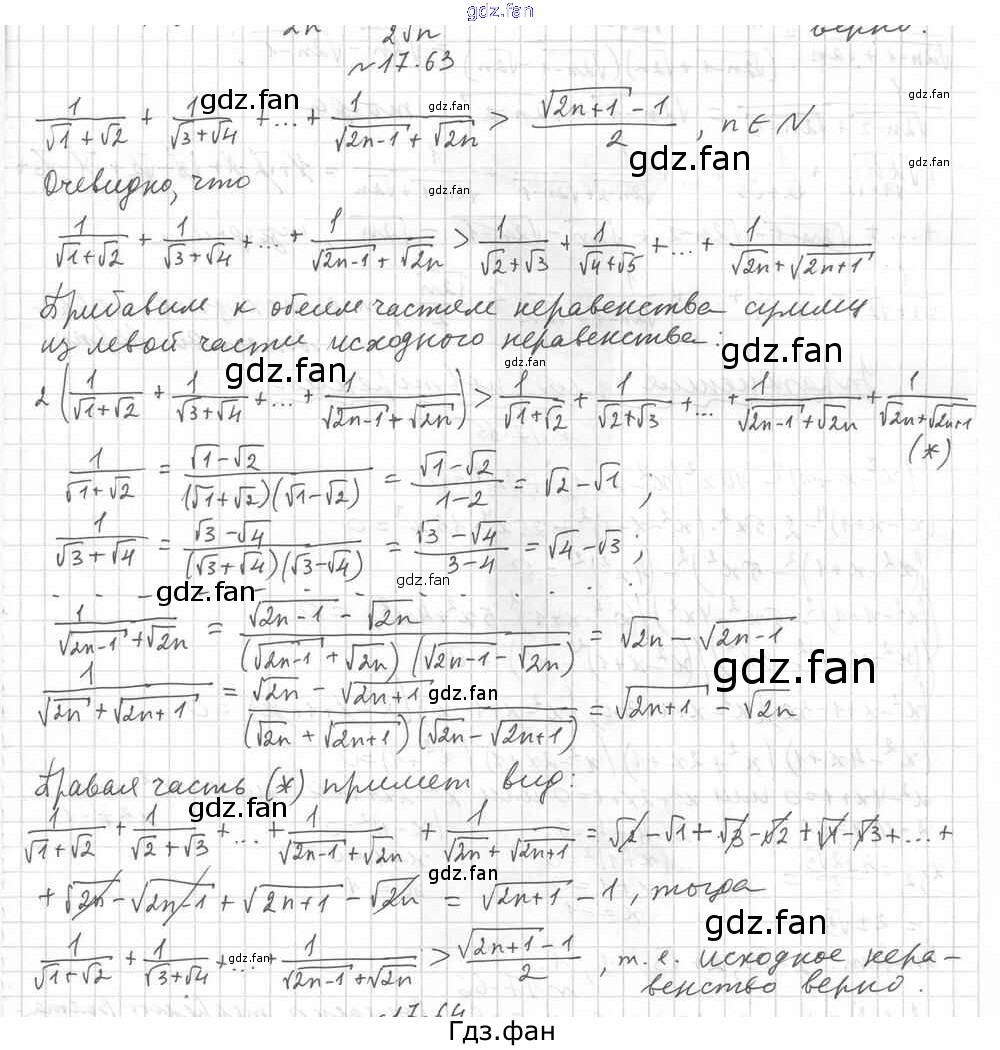 gdz.fan
2n 2√n верно.
№17.63
1/(√1+√2) + 1/(√3+√4) + ... + 1/(√(2n-1)+√(2n)) > (√(2n+1)-1)/2, n∈N
gdz.fan gdz.fan gdz.fan gdz.fan
Очевидно, что gdz.fan gdz.fan
1/(√1+√2) + 1/(√3+√4) + ... + 1/(√(2n-1)+√(2n)) > 1/(√2+√3) + 1/(√4+√5) + ... + 1/(√(2n)+√(2n+1))
Прибавим к обеим частям неравенства сумму
из левой части исходного неравенства:
gdz.fan gdz.fan gdz.fan
2(1/(√1+√2) + 1/(√3+√4) + ... + 1/(√(2n-1)+√(2n))) > 1/(√1+√2) + 1/(√2+√3) + ... + 1/(√(2n-1)+√(2n)) + 1/(√(2n)+√(2n+1))
(*)
1/(√1+√2) = (√1-√2)/((√1+√2)(√1-√2)) = (√1-√2)/(1-2) = √2-√1;
1/(√3+√4) = (√3-√4)/((√3+√4)(√3-√4)) = (√3-√4)/(3-4) = √4-√3;
gdz.fan gdz.fan
1/(√(2n-1)+√(2n)) = (√(2n-1)-√(2n))/((√(2n-1)+√(2n))(√(2n-1)-√(2n))) = √(2n)-√(2n-1)
gdz.fan
1/(√(2n)+√(2n+1)) = (√(2n)-√(2n+1))/((√(2n)+√(2n+1))(√(2n)-√(2n+1))) = √(2n+1)-√(2n)
gdz.fan
Правая часть (*) примет вид:
gdz.fan
1/(√1+√2) + 1/(√2+√3) + ... + 1/(√(2n-1)+√(2n)) + 1/(√(2n)+√(2n+1)) = √2-√1+√3-√2+√4-√3+...+
gdz.fan
+√(2n)-√(2n-1)+√(2n+1)-√(2n) = √(2n+1)-1, тогда
gdz.fan
1/(√1+√2) + 1/(√3+√4) + ... + 1/(√(2n-1)+√(2n)) > (√(2n+1)-1)/2, т.е. исходное нера-
gdz.fan
венство верно.
17.64
Гдз.фан